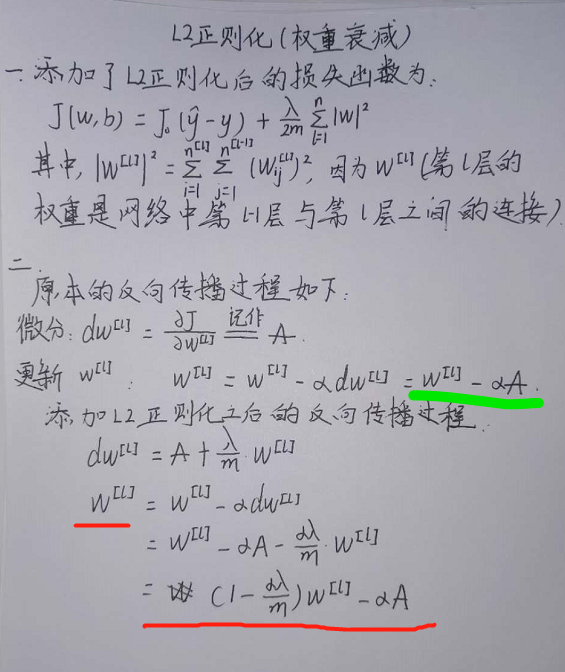 L2正则化(权重衰减)
一.添加了L2正则化后的损失函数为:
J(w,b) = J₀(ŷ-y) + λ/2m ∑ⁿₗ₌₁ |w|²
其中,|W^[l]|² = ∑ᵢ₌₁^n^[l] ∑ⱼ₌₁^n^[l-1] (Wij^[l])², 因为 W^[l] (第l层的
权重是网络中第l-1层与第l层之间的连接)
二.
原本的反向传播过程如下:
微分: dw^[l] = ∂J/∂w^[l] 记作 A
更新 w^[l]: w^[l] = w^[l] - αdw^[l] = w^[l] - αA.
添加L2正则化之后的反向传播过程:
dw^[l] = A + λ/m · W^[l]
W^[l] = W^[l] - αdw^[l]
= W^[l] - αA - αλ/m · W^[l]
= (1 - αλ/m)W^[l] - αA